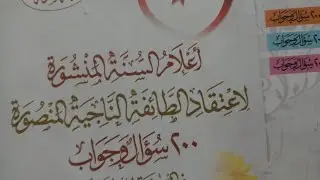 أعلام السنة المنشورة
لاعتقاد الطائفة الناجية المنصورة
٢٠٠ سؤال وجواب
٢٠٠ سؤال وجواب
سؤال وجواب
سؤال وجواب